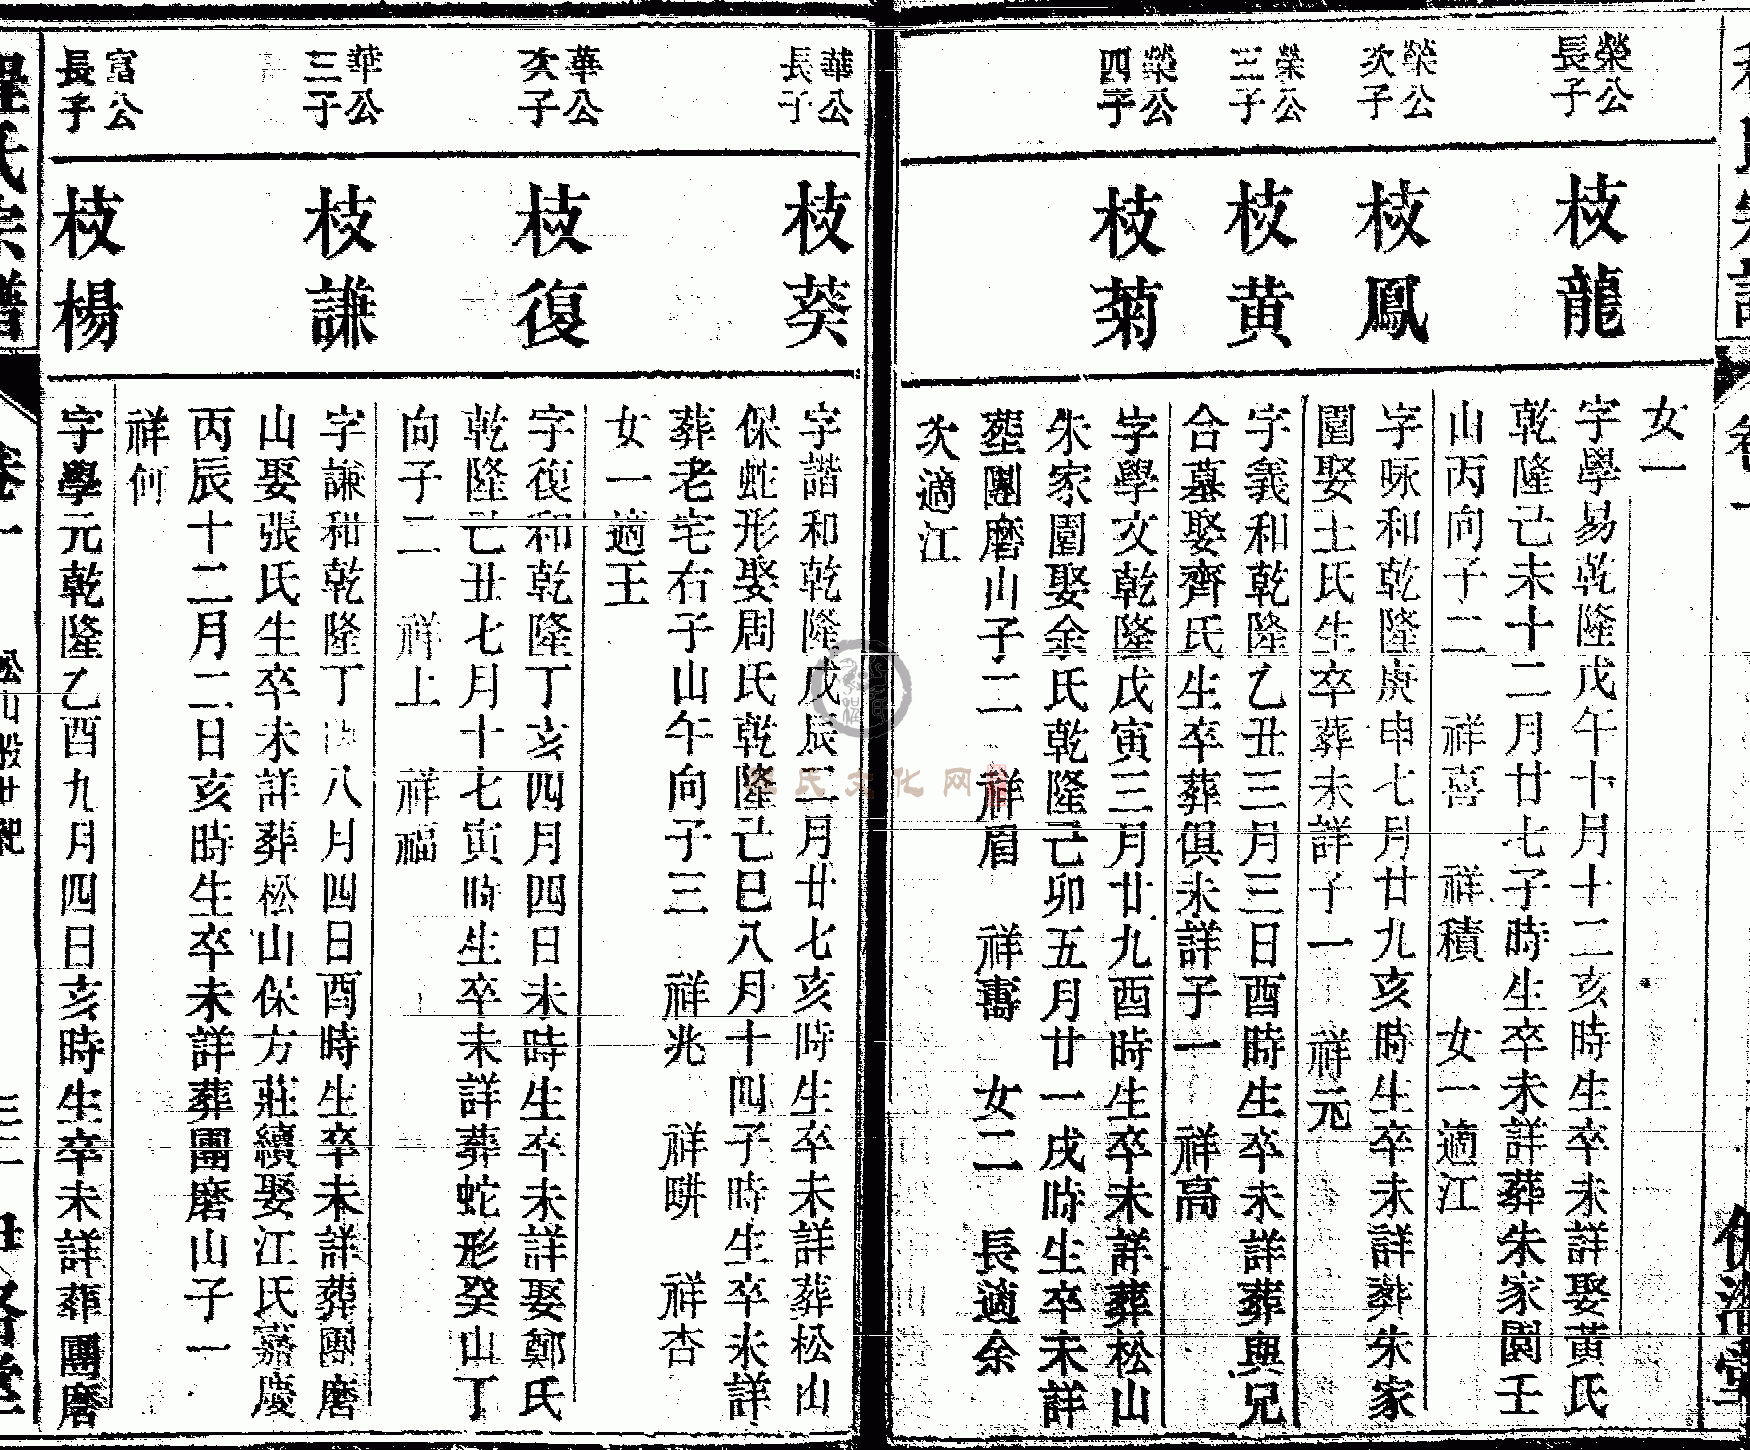 女一
榮公長子
枝龍
字學易乾隆戊午十月十二亥時生卒未詳娶黃氏
乾隆己未十二月廿七子時生卒未詳葬朱家園壬
山丙向子二 祥喜 祥積 女一適江
榮公次子
枝鳳
字咏和乾隆庚申七月廿九亥時生卒未詳葬朱家
園娶王氏生卒葬未詳子一 祥元
榮公三子
枝黃
字義和乾隆乙丑三月三日酉時生卒未詳葬與兄
合墓娶齊氏生卒葬俱未詳子一 祥高
榮公四子
枝菊
字學文乾隆戊寅三月廿九酉時生卒未詳葬松山
朱家園娶余氏乾隆己卯五月廿一戌時生卒未詳
葬團磨山子二 祥眉 祥壽 女二 長適余
次適江
華公長子
枝葵
字諧和乾隆戊辰二月廿七亥時生卒未詳葬松山
保蛇形娶周氏乾隆己巳八月十四子時生卒未詳
葬老宅右子山午向子三 祥兆 祥畊 祥杏
女一適王
華公亥子
枝復
字復和乾隆丁亥四月四日未時生卒未詳娶鄭氏
乾隆己丑七月十七寅時生卒未詳葬蛇形癸山丁
向子二 祥上 祥福
華公三子
枝謙
字謙和乾隆丁酉八月四日酉時生卒未詳葬團磨
山娶張氏生卒未詳葬松山保方莊續娶江氏嘉慶
丙辰十二月二日亥時生卒未詳葬團磨山子一
祥何
富公長子
枝楊
字學元乾隆乙酉九月四日亥時生卒未詳葬團磨
氏宗譜
卷一
松山
氏文化网